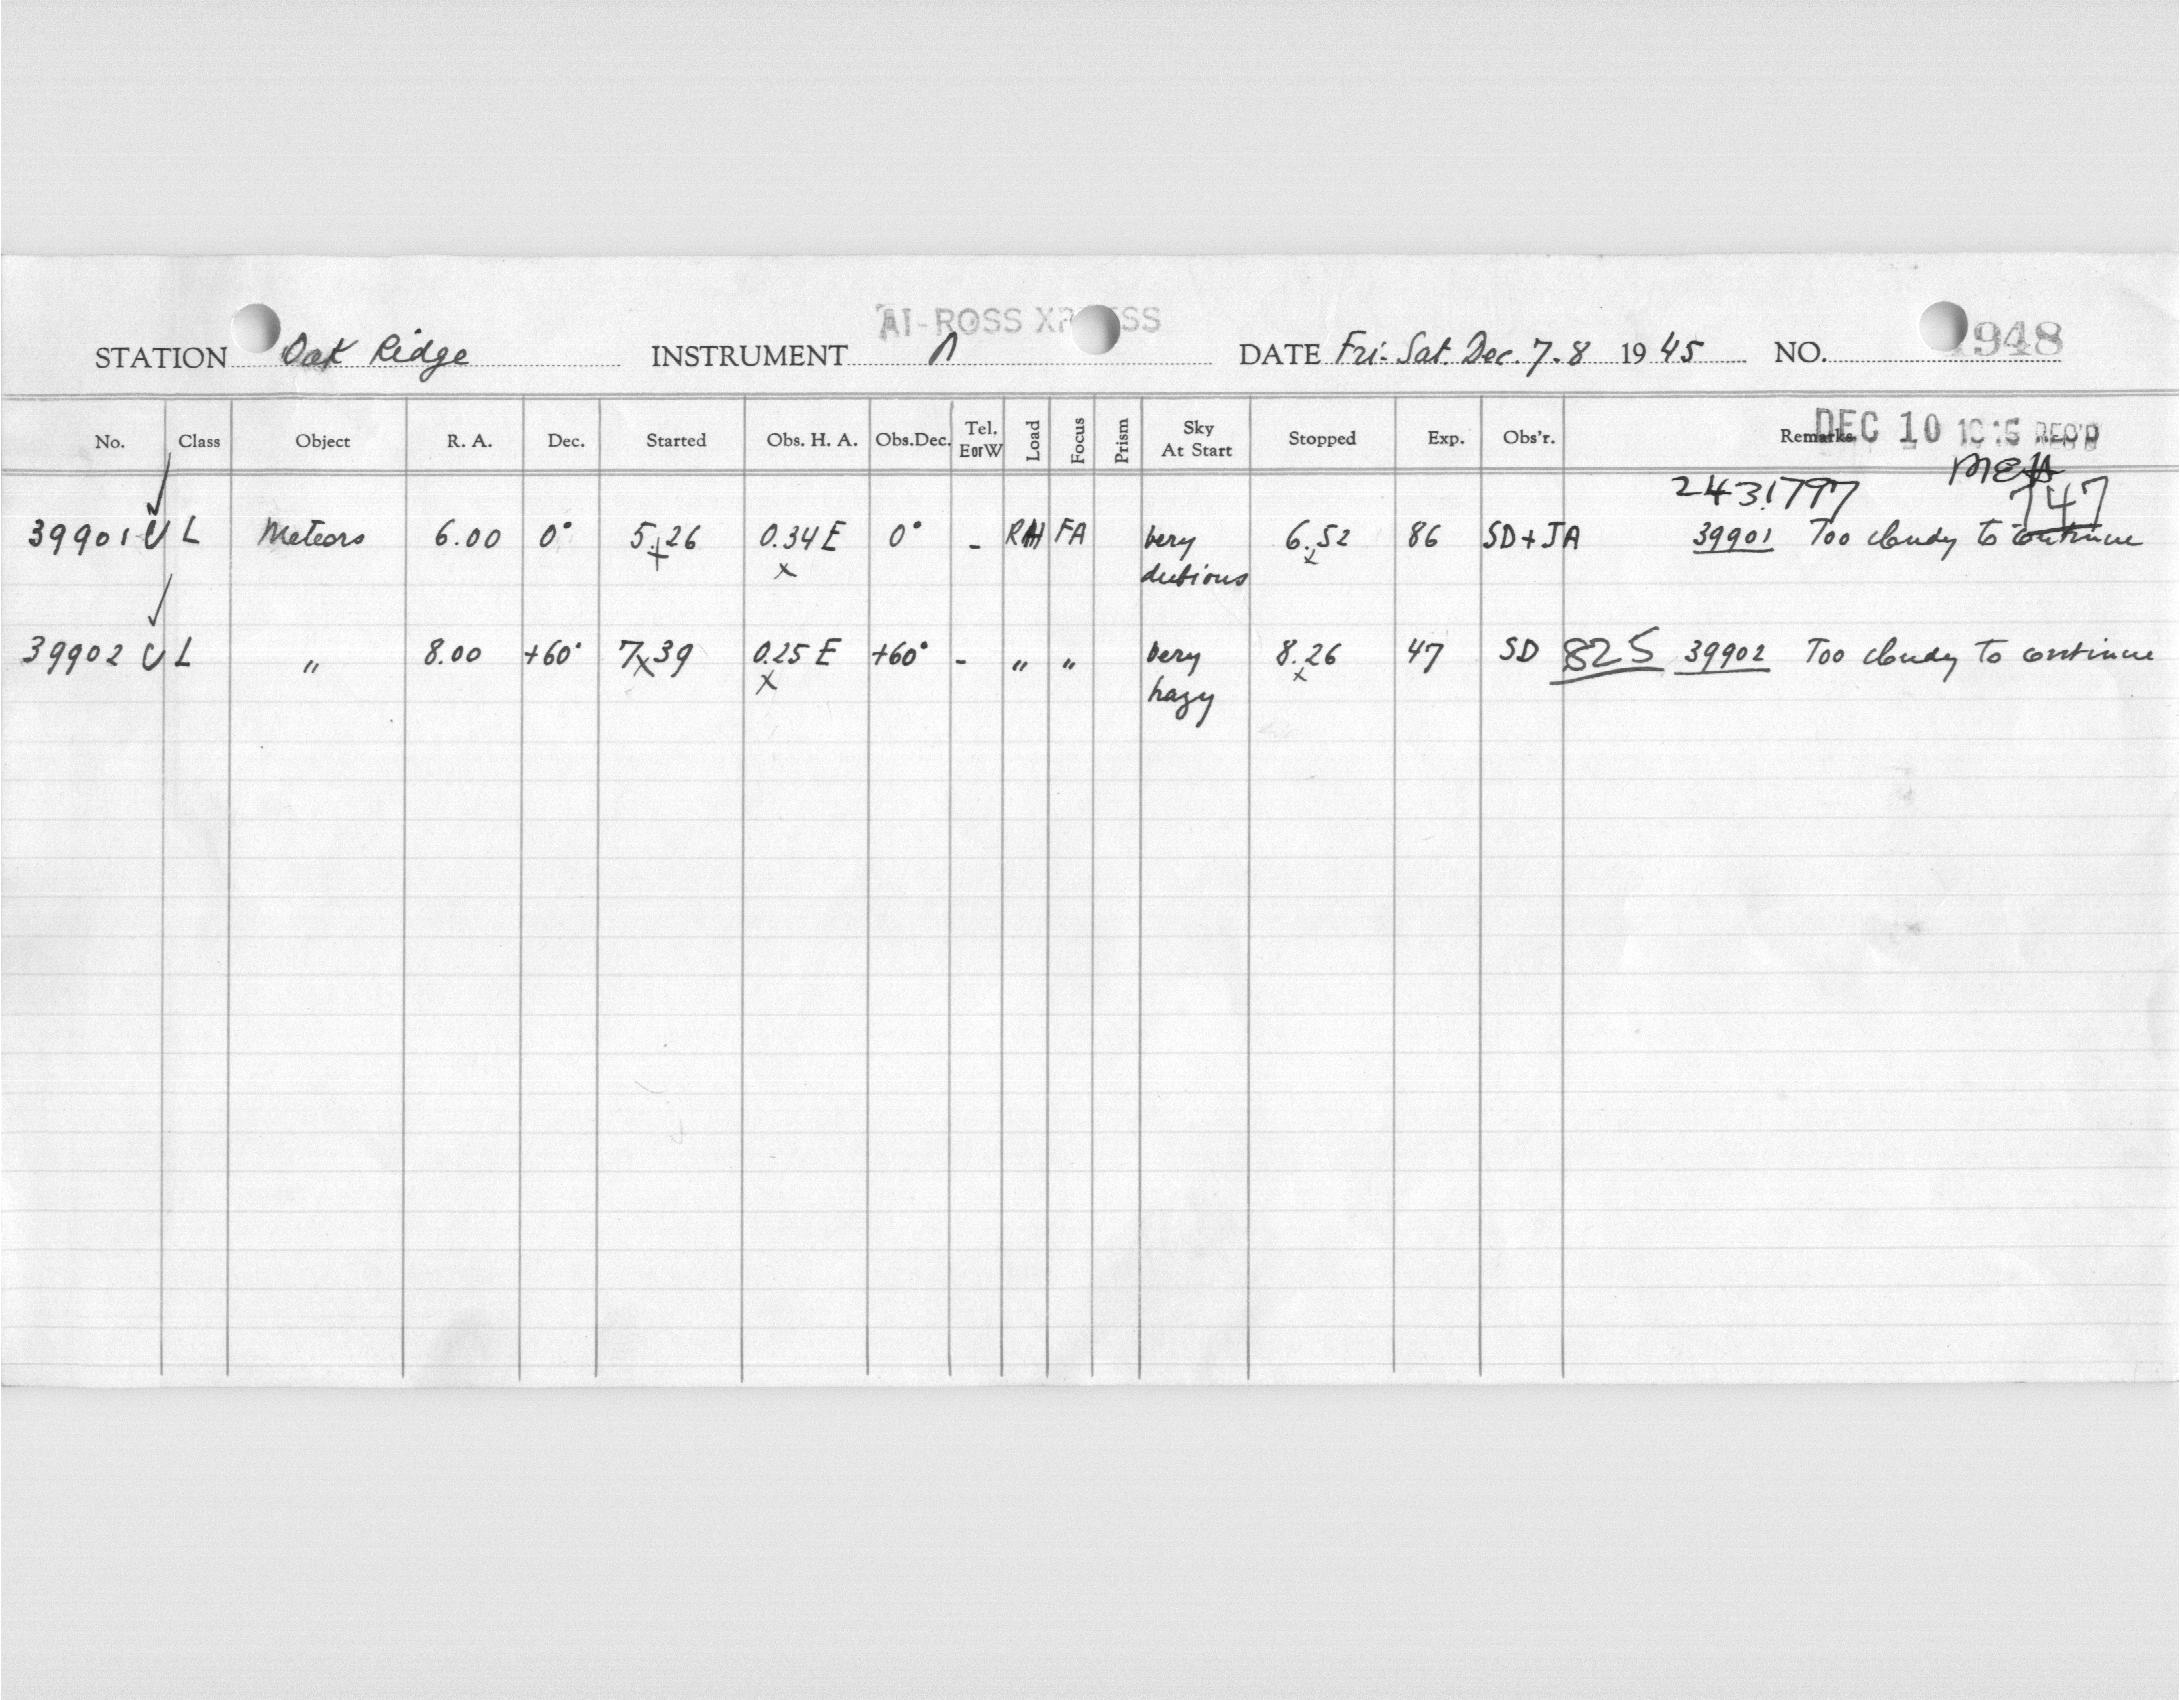 AI-ROSS XP SS
STATION Oak Ridge INSTRUMENT Λ DATE Fri-Sat. Dec. 7-8 1945 NO. 1948
No. Class Object R. A. Dec. Started Obs. H. A. Obs.Dec. Tel. EorW Load Focus Prism Sky At Start Stopped Exp. Obs'r. Remarks
DEC 10 REC'D
2431797
747
39901 L Meteors 6.00 0° 5.26 0.34 E 0° - RH FA very dubious 6.52 86 SD+JA 39901 Too cloudy to continue
39902 L " 8.00 +60° 7.39 0.25 E +60° - " " very hazy 8.26 47 SD 825 39902 Too cloudy to continue